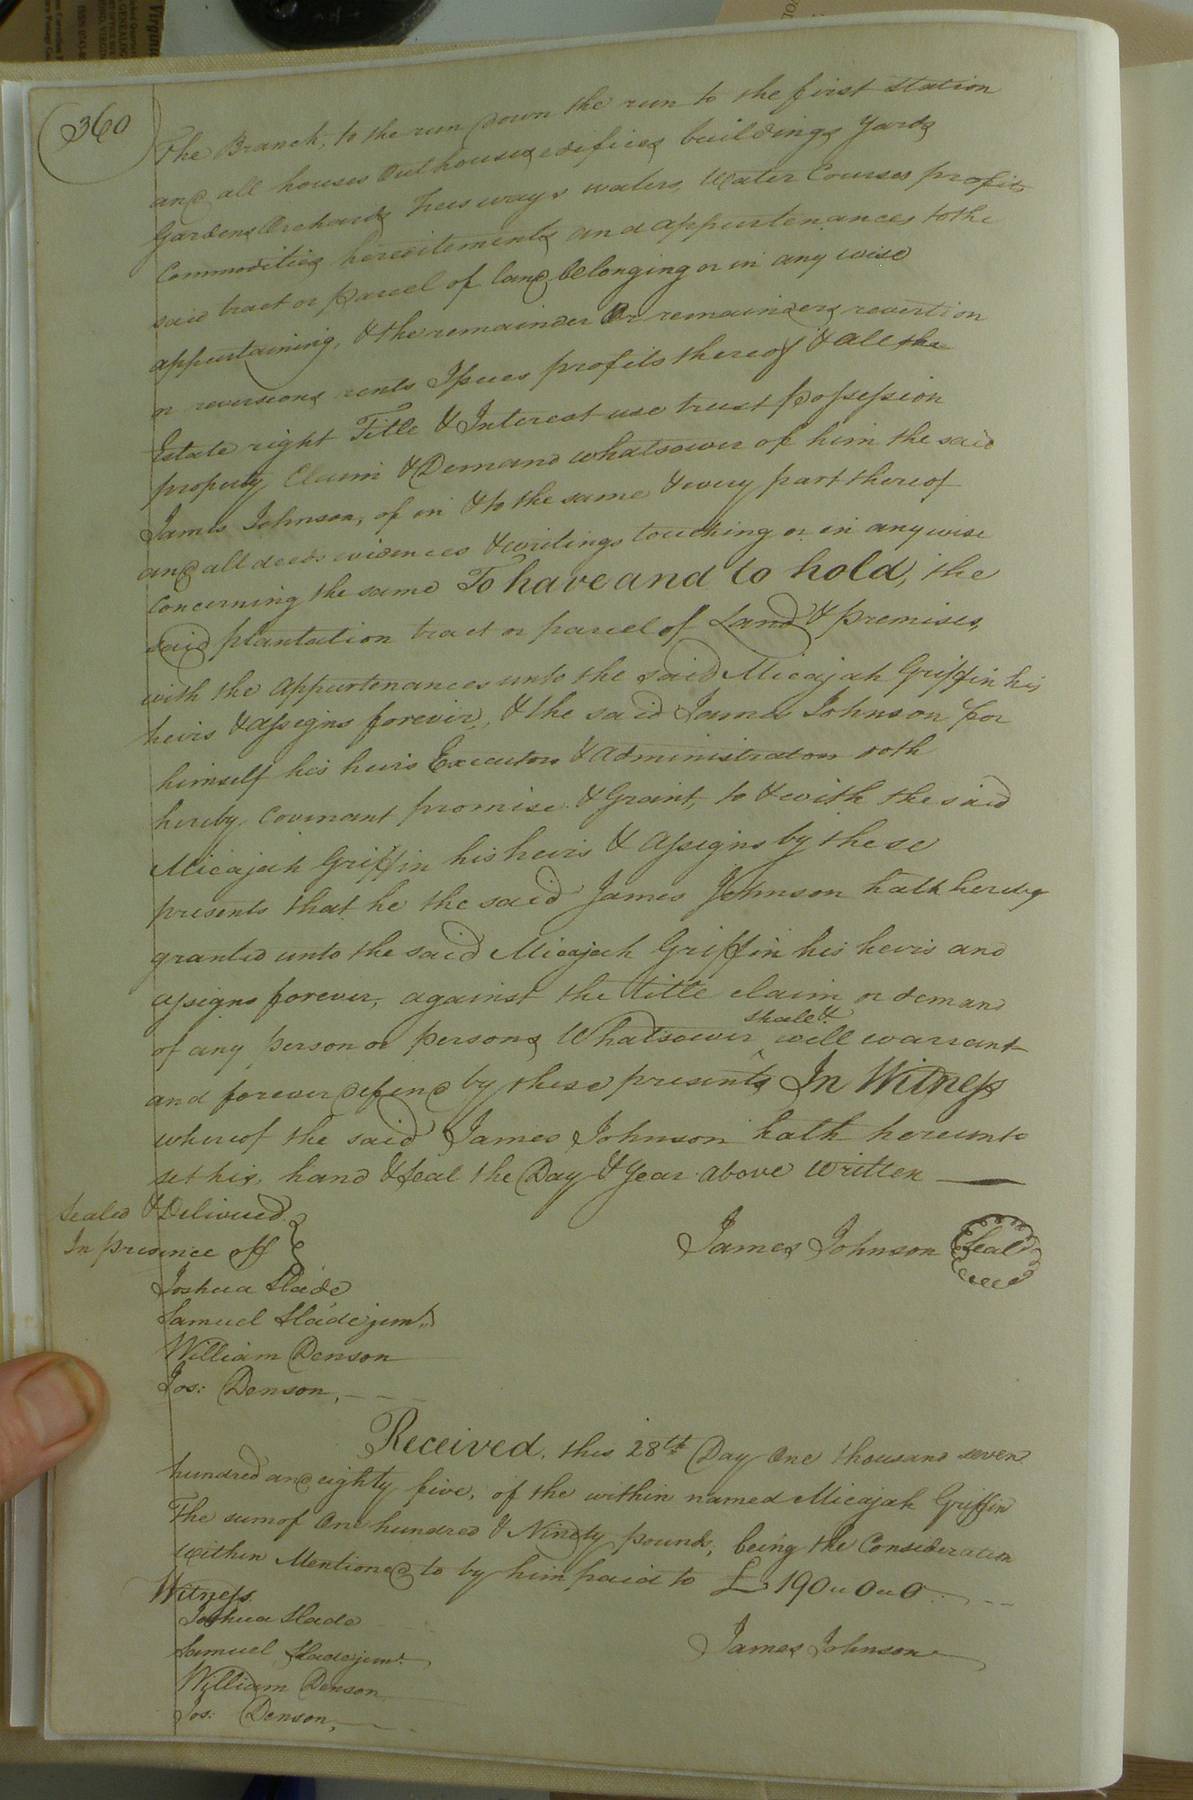 360
The Branch, to the run down the run to the first station
and all houses Outhouses edifices buildings Yards
Gardens Orchards Trees ways waters, Water Courses profits
Commodities hereditements and appurtenances to the
said tract or parcel of land belonging or in any wise
appurtaining, & the remainder Or remainders revertion
or reversions rents Issues profits thereof & all the
Estate right Title & Interest use trust possession
property Claim & Demand whatsoever of him the said
James Johnson, of in & to the same & every part thereof
and all deeds evidences & writings touching or in any wise
Concerning the same To have and to hold, the
said plantation tract or parcel of Land & premises,
with the appurtenances unto the said Micajah Griffin his
heirs & assigns forever, & the said James Johnson for
himself his heirs Executors & administrators doth
hereby Covenant promise & Grant, to & with the said
Micajah Griffin his heirs & assigns by these
presents that he the said James Johnson hath hereby
granted unto the said Micajah Griffin his heirs and
assigns forever, against the title claim or demand
of any person or persons Whatsoever shall & will warrant
and forever defend by these presents In Witness
whereof the said James Johnson hath hereunto
set his hand & seal the Day & Year above written
Sealed & Delivered
In presence off
James Johnson Seal
Joshua Slade
Samuel Slade junr.
William Denson
Jos: Denson,
Received, this 28th Day One thousand seven
hundred and eighty five, of the within named Micajah Griffin
The sum of One hundred & Ninety pounds, being the Consideration
Within Mentioned to by him paid to £190"0"0
Witness
Joshua Slade
James Johnson
Samuel Slade junr.
William Denson
Jos: Denson,